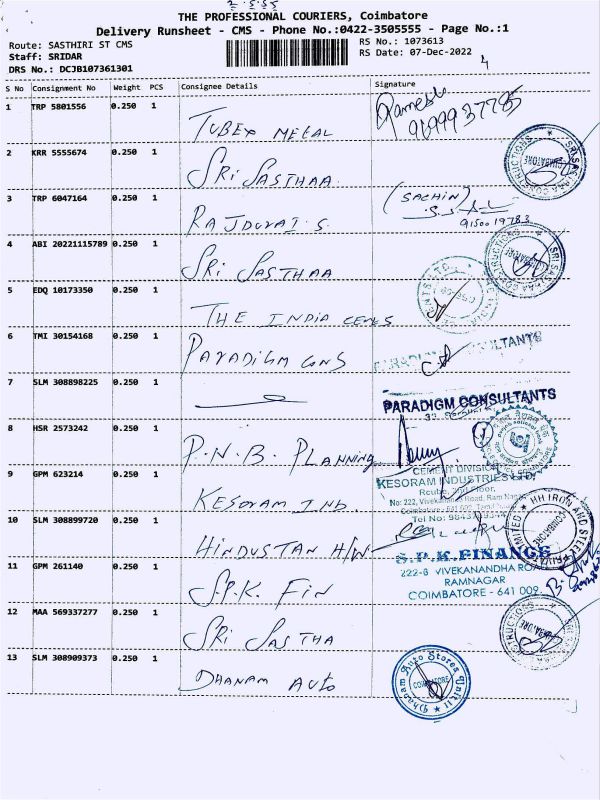 THE PROFESSIONAL COURIERS, Coimbatore
Delivery Runsheet - CMS - Phone No.:0422-3505555 - Page No.:1
Route: SASTHIRI ST CMS
RS No.: 1073613
Staff: SRIDAR
RS Date: 07-Dec-2022
DRS No.: DCJB107361301
S No Consignment No Weight PCS Consignee Details Signature
1 TRP 5801556 0.250 1 TUBEX METAL
Ramesh
2 KRR 5555674 0.250 1 SRI SASTHAA
3 TRP 6047164 0.250 1 RAJDURAI S. (SACHIN)
9150019783
4 ABI 20221115789 0.250 1 SRI SASTHAA
5 EDQ 10173350 0.250 1 THE INDIA CEMS
6 TMI 30154168 0.250 1 PARADIGM CONS
7 SLM 308898225 0.250 1
PARADIGM CONSULTANTS
8 HSR 2573242 0.250 1 P.N.B. PLANNING
CEMENT DIVISION
KESORAM INDUSTRIES LTD.
9 GPM 623214 0.250 1 KESORAM IND
10 SLM 308899720 0.250 1 HINDUSTAN H/W
HH IRON AND STEEL
11 GPM 261140 0.250 1 S.P.K. FIN
S.P.K.FINANCE
222-B VIVEKANANDHA ROAD
RAMNAGAR
COIMBATORE - 641 009.
12 MAA 569337277 0.250 1 SRI SASTHA
13 SLM 308909373 0.250 1 DHANAM AUTO
Dhanam Auto Stores Unit II
COIMBATORE